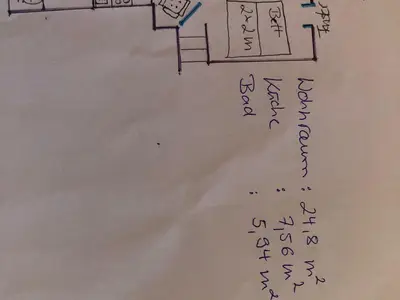 Bett
2x2m
Wohnraum : 24,8 m²
Küche : 7,56 m²
Bad : 5,94 m²